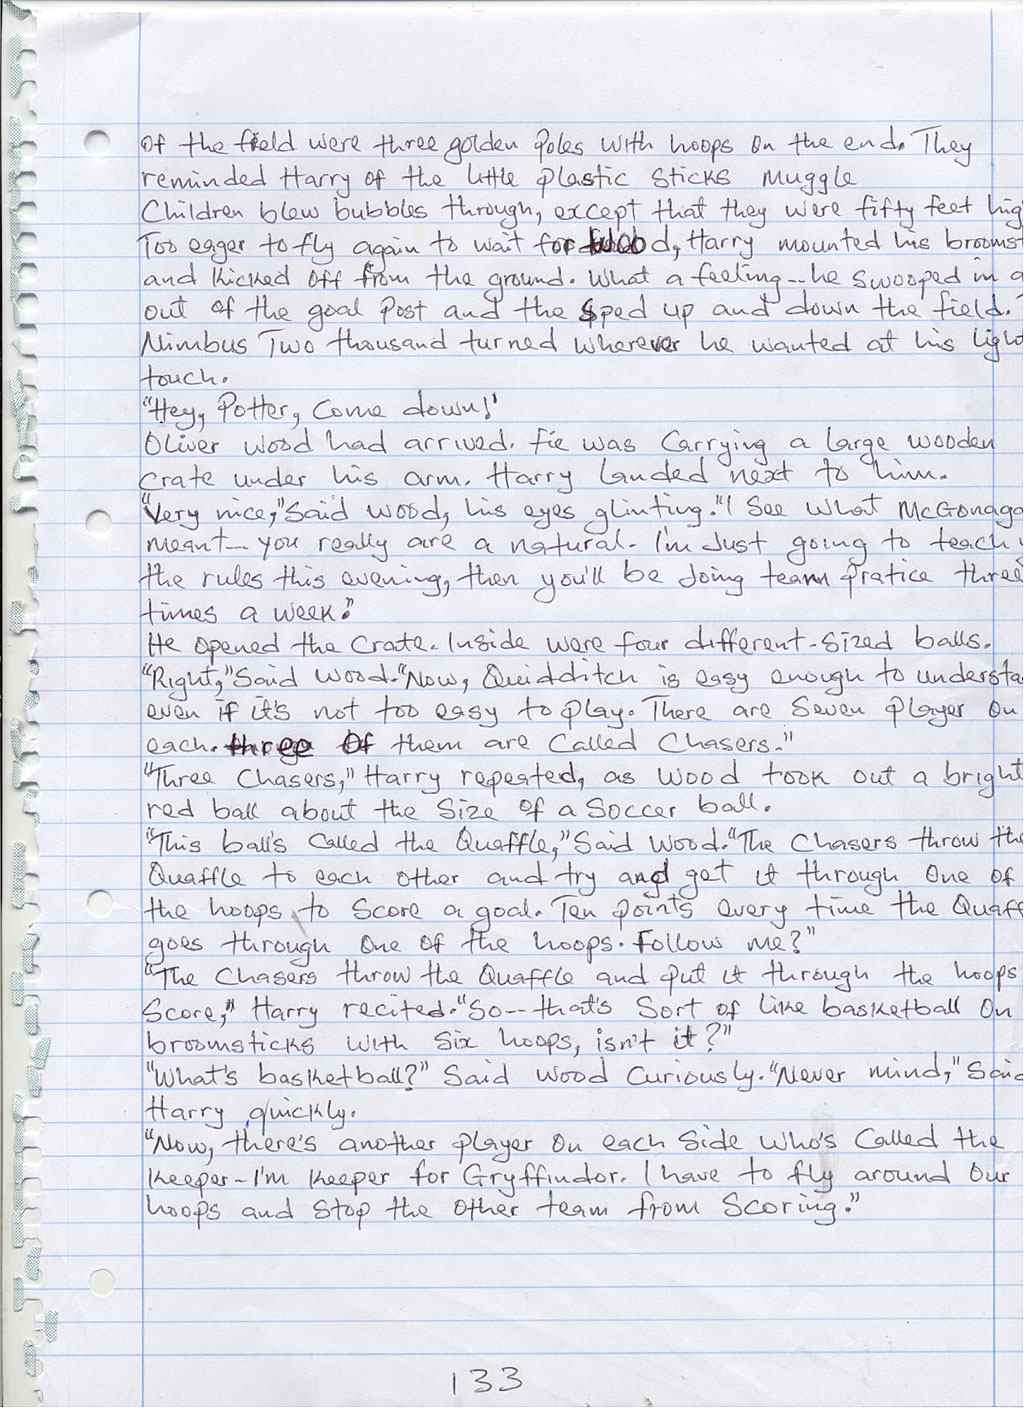 of the field were three golden poles with hoops on the end. They
reminded Harry of the little plastic sticks Muggle
Children blew bubbles through, except that they were fifty feet hig
Too eager to fly again to wait for Wood, Harry mounted his brooms
and kicked off from the ground. What a feeling -- he swooped in a
out of the goal post and the sped up and down the field. T
Nimbus Two thousand turned wherever he wanted at his light
touch.
"Hey, Potter, Come down!"
Oliver Wood had arrived. He was Carrying a large wooden
crate under his arm. Harry landed next to him.
"Very nice," Said Wood, his eyes glinting. "I See what McGonaga
meant -- you really are a natural. I'm Just going to teach y
the rules this evening, then you'll be doing team pratice three
times a week."
He opened the Crate. Inside were four different-sized balls.
"Right," Said Wood. "Now, Quidditch is easy enough to understa
even if it's not too easy to play. There are Seven player on
each. three Of them are Called Chasers."
"Three Chasers," Harry repeated, as Wood took out a bright
red ball about the Size of a Soccer ball.
"This ball's Called the Quaffle," Said Wood. "The Chasers throw the
Quaffle to each other and try and get it through One of
the hoops to Score a goal. Ten points every time the Quaff
goes through One of the hoops. Follow me?"
"The Chasers throw the Quaffle and put it through the hoops
Score," Harry recited. "So -- that's Sort of like basketball On
broomsticks with Six hoops, isn't it?"
"What's basketball?" Said Wood Curiously. "Never mind," Said
Harry quickly.
"Now, there's another player On each Side Who's Called the
Keeper - I'm Keeper for Gryffindor. I have to fly around Our
hoops and Stop the Other team from Scoring."
133